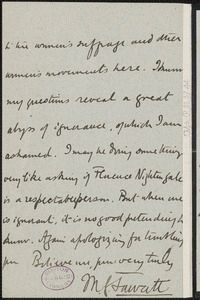 to her women's suffrage and other
women's movements here. I know
my questions reveal a great
abyss of ignorance, of which I am
ashamed. I may be doing something
very like asking if Florence Nightingale
is a respectable person. But when one
is ignorant, it is no good pretending to
know. Again apologizing for troubling
you Believe me yours very truly
M G Fawcett